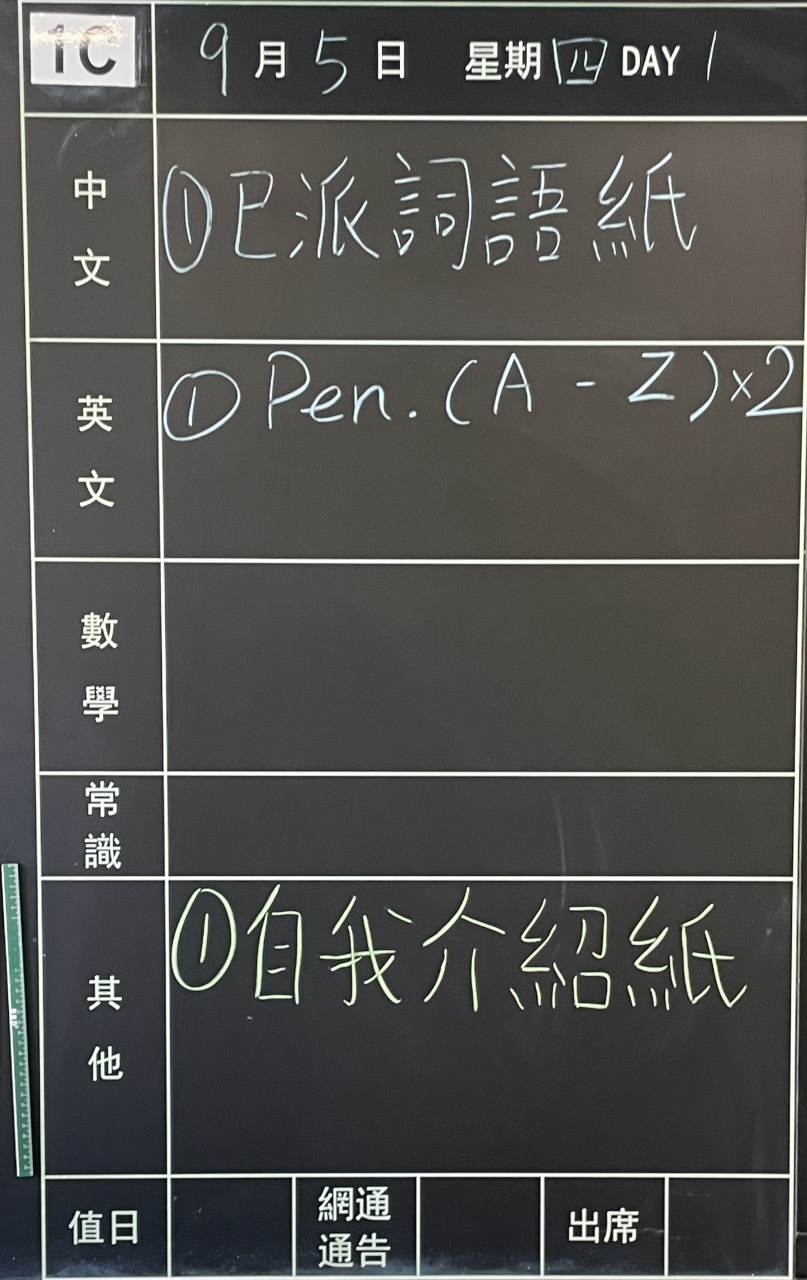 1C 9月5日 星期四 DAY 1
中文 ①已派詞語紙
英文 ① Pen. (A - Z)×2
數學
常識
其他 ①自我介紹紙
值日 網通通告 出席